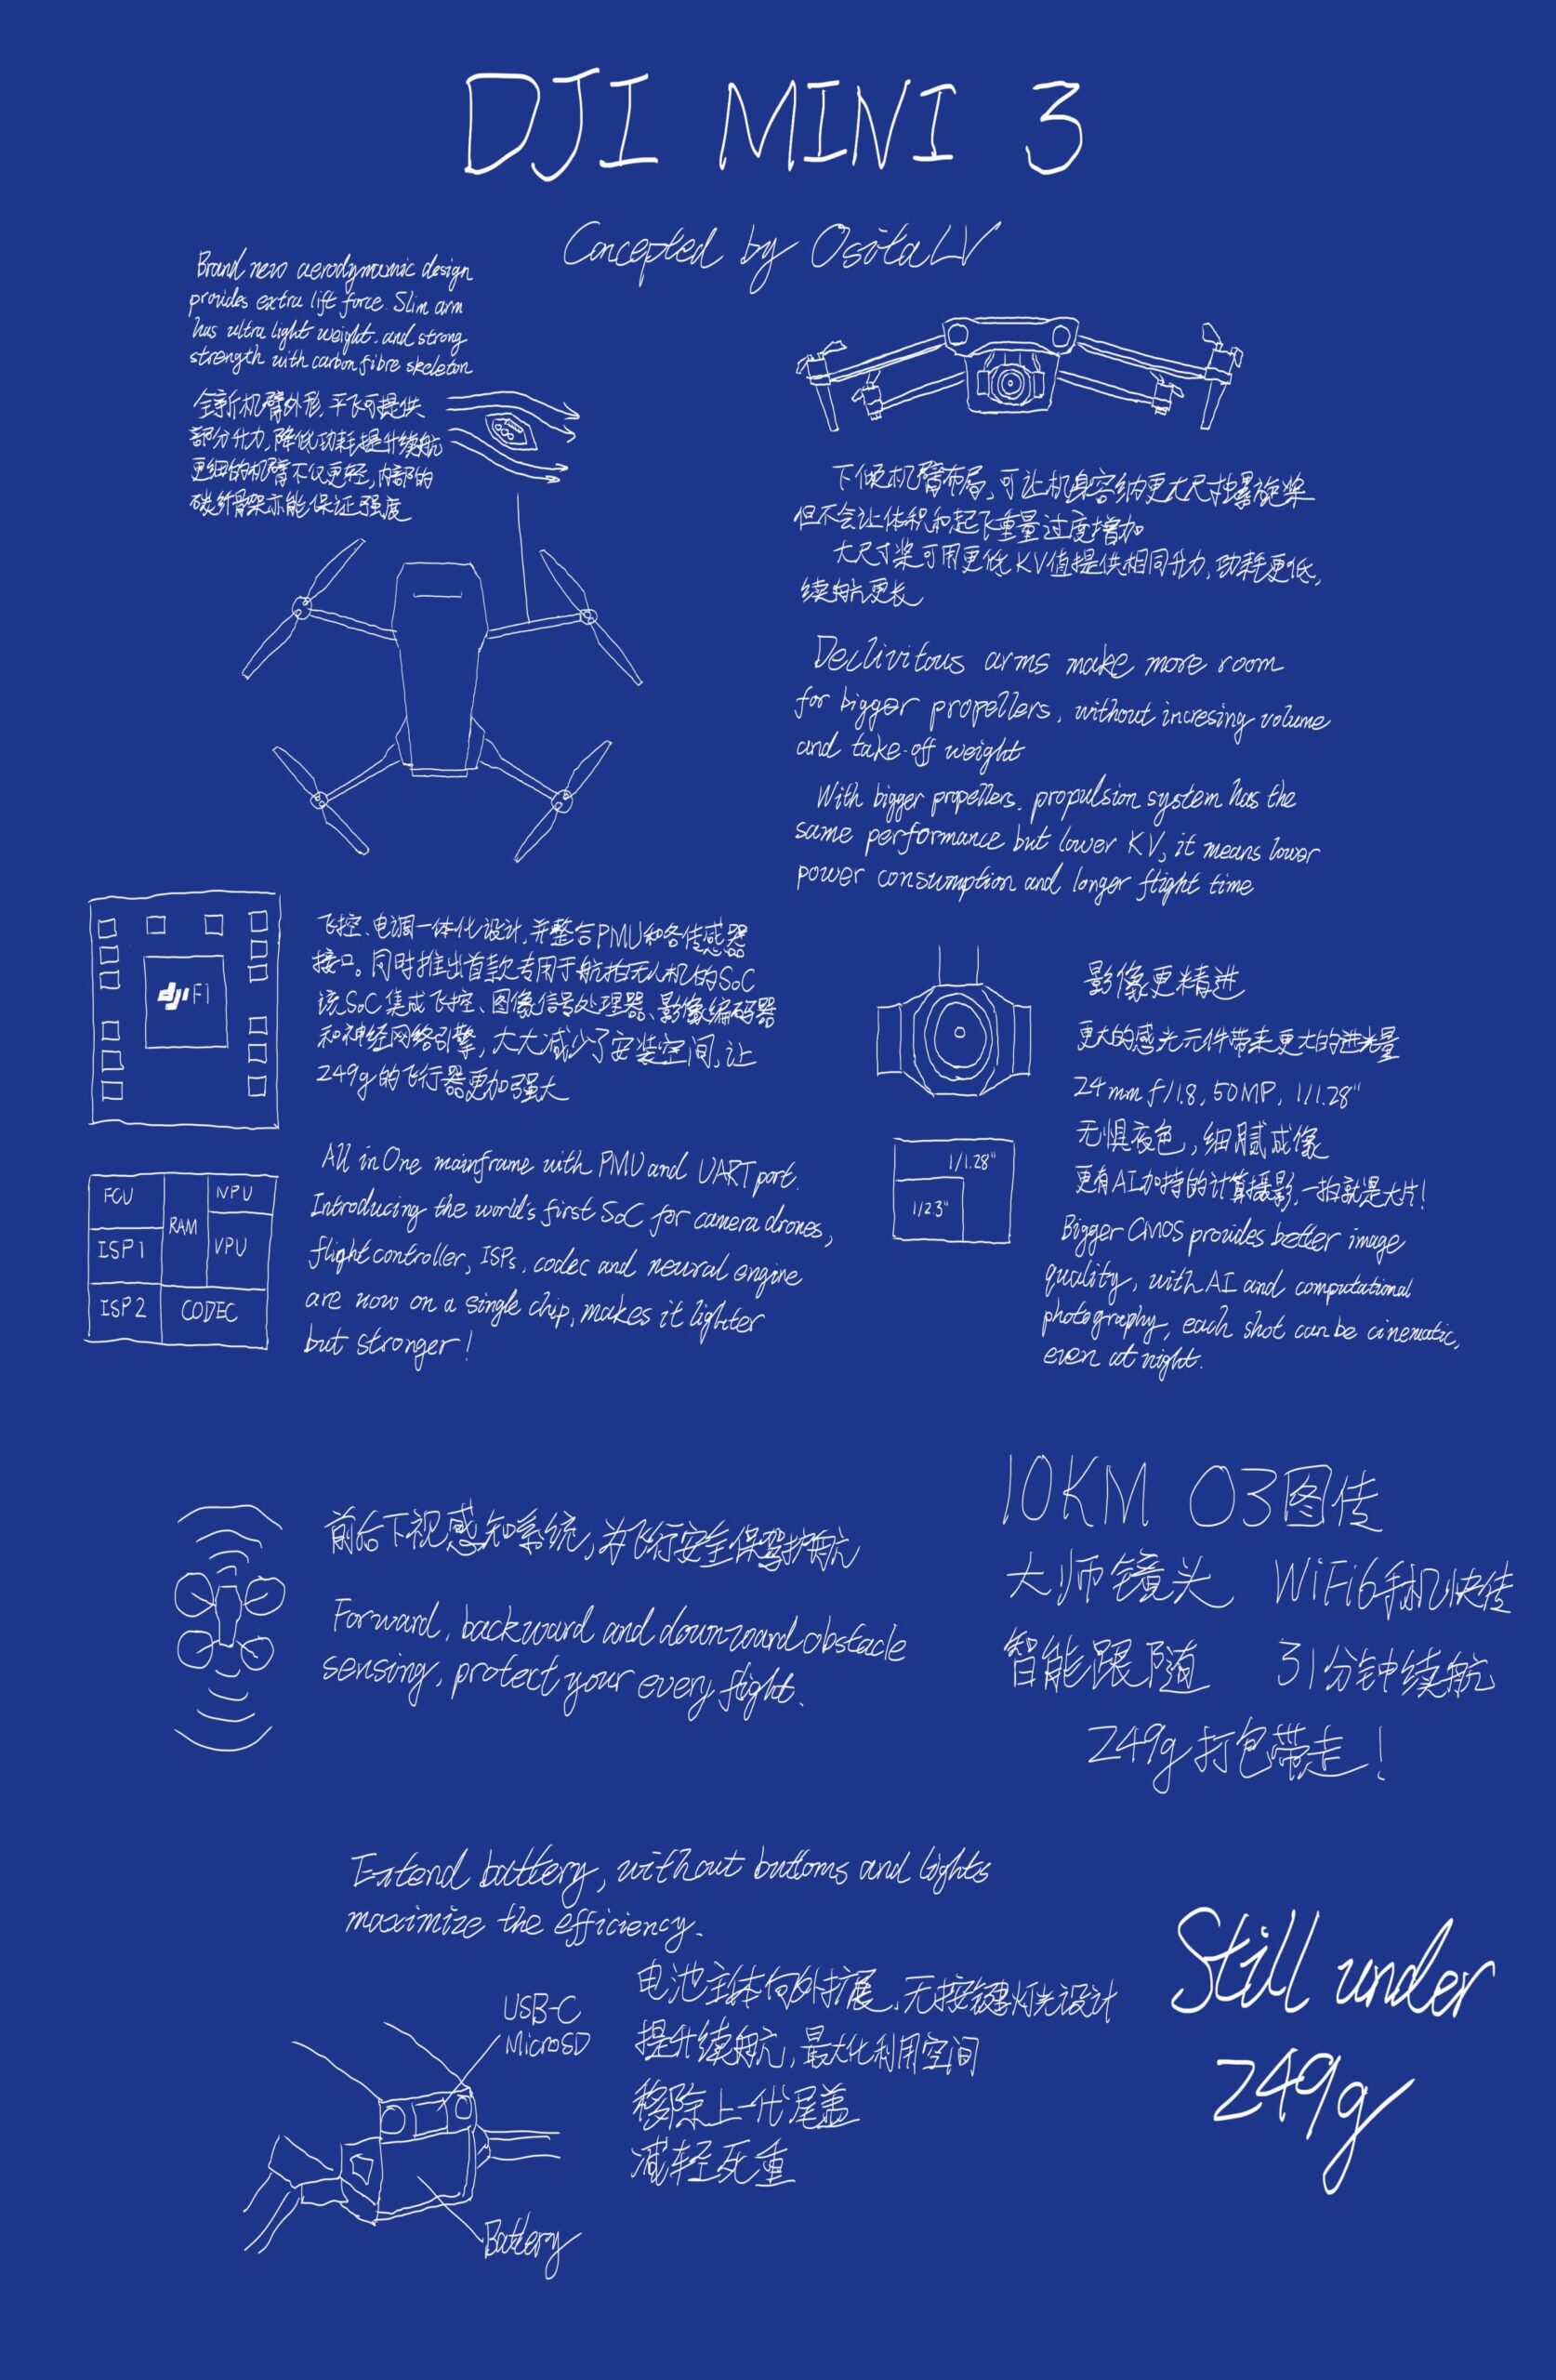 DJI MINI 3
Concepted by OsitaLV
Brand new aerodynamic design
provides extra lift force. Slim arm
has ultra light weight. and strong
strength with carbon fibre skeleton
全新机臂外形,平飞可提供
部分升力,降低功耗提升续航
更细的机臂不仅更轻,内部的
碳纤骨架亦能保证强度
下倾机臂布局,可让机身容纳更大尺寸螺旋桨
但不会让体积和起飞重量过度增加
大尺寸桨可用更低KV值提供相同升力,功耗更低,
续航更长
Declivitous arms make more room
for bigger propellers, without incresing volume
and take-off weight
With bigger propellers. propulsion system has the
same performance but lower KV, it means lower
power consumption and longer flight time
dji F1
飞控、电调一体化设计,并整合PMU和各传感器
接口。同时推出首款专用于航拍无人机的SoC
该SoC集成飞控、图像信号处理器、影像编码器
和神经网络引擎,大大减少了安装空间,让
249g的飞行器更加强大
FCU
RAM
NPU
ISP1
VPU
ISP2
CODEC
All in One mainframe with PMU and UART port.
Introducing the world's first SoC for camera drones,
flight controller, ISPs, codec and neural engine
are now on a single chip, makes it lighter
but stronger!
影像更精进
更大的感光元件带来更大的进光量
24mm f/1.8, 50MP, 1/1.28"
无惧夜色,细腻成像
更有AI加持的计算摄影,一拍就是大片!
1/1.28"
1/2.3"
Bigger CMOS provides better image
quality, with AI and computational
photography, each shot can be cinematic,
even at night.
前后下视感知系统,为飞行安全保驾护航
Forward, backward and downward obstacle
sensing, protect your every flight.
10KM O3图传
大师镜头 WiFi6手机快传
智能跟随 31分钟续航
249g打包带走!
Extend battery, without buttoms and lights
maximize the efficiency.
电池主体向外扩展,无按键灯光设计
提升续航,最大化利用空间
移除上一代尾盖
减轻死重
USB-C
MicroSD
Battery
Still under
249g